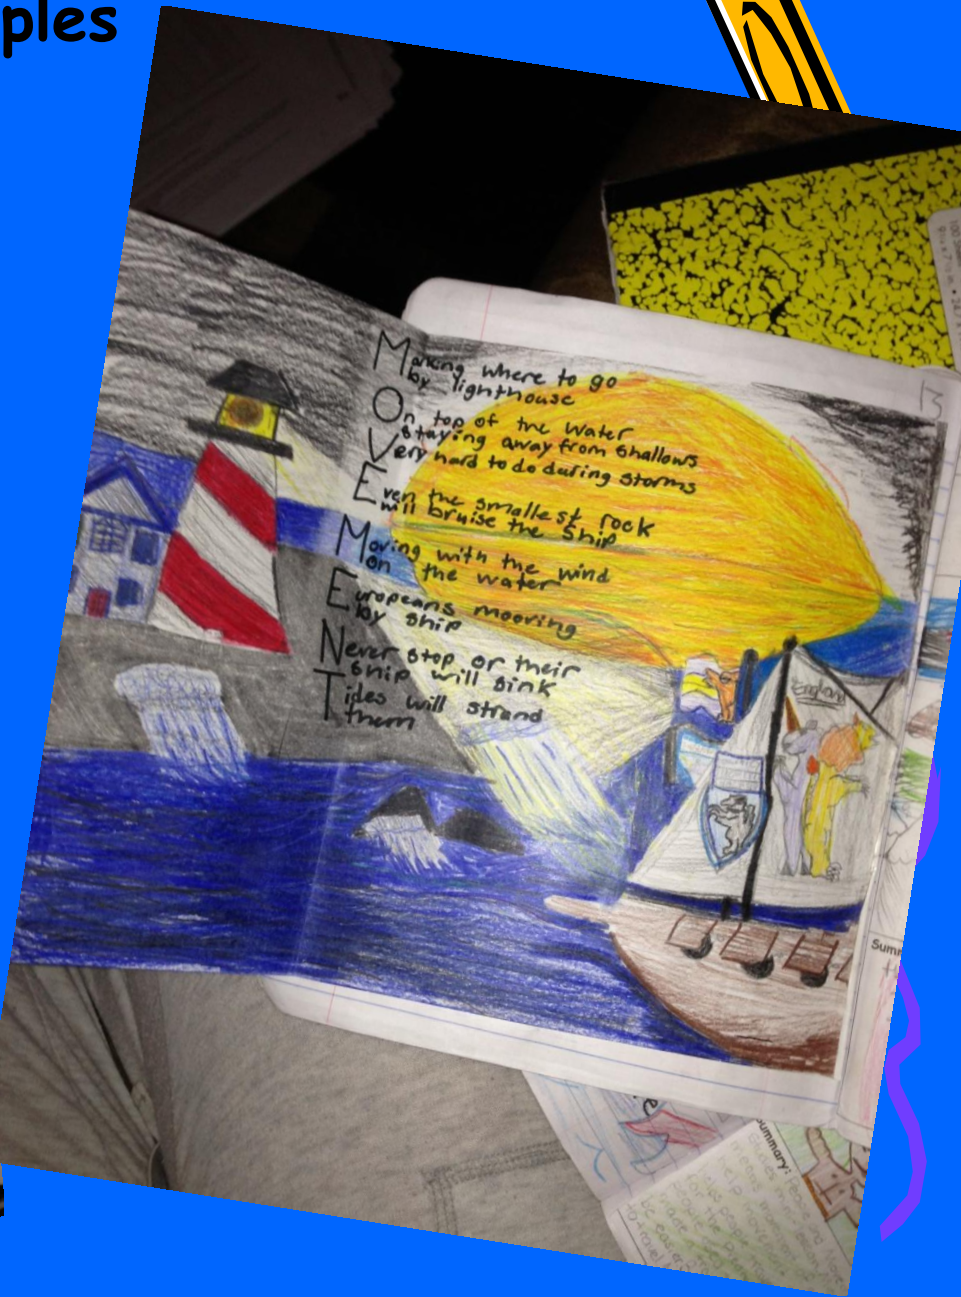 ples
Making where to go
by lighthouse
On top of the water
staying away from shallows
Very hard to do during storms
Even the smallest rock
will bruise the ship
Moving with the wind
on the water
Europeans mooring
by ship
Never stop or their
ship will sink
Tides will strand
them
England
Summ
Summary: